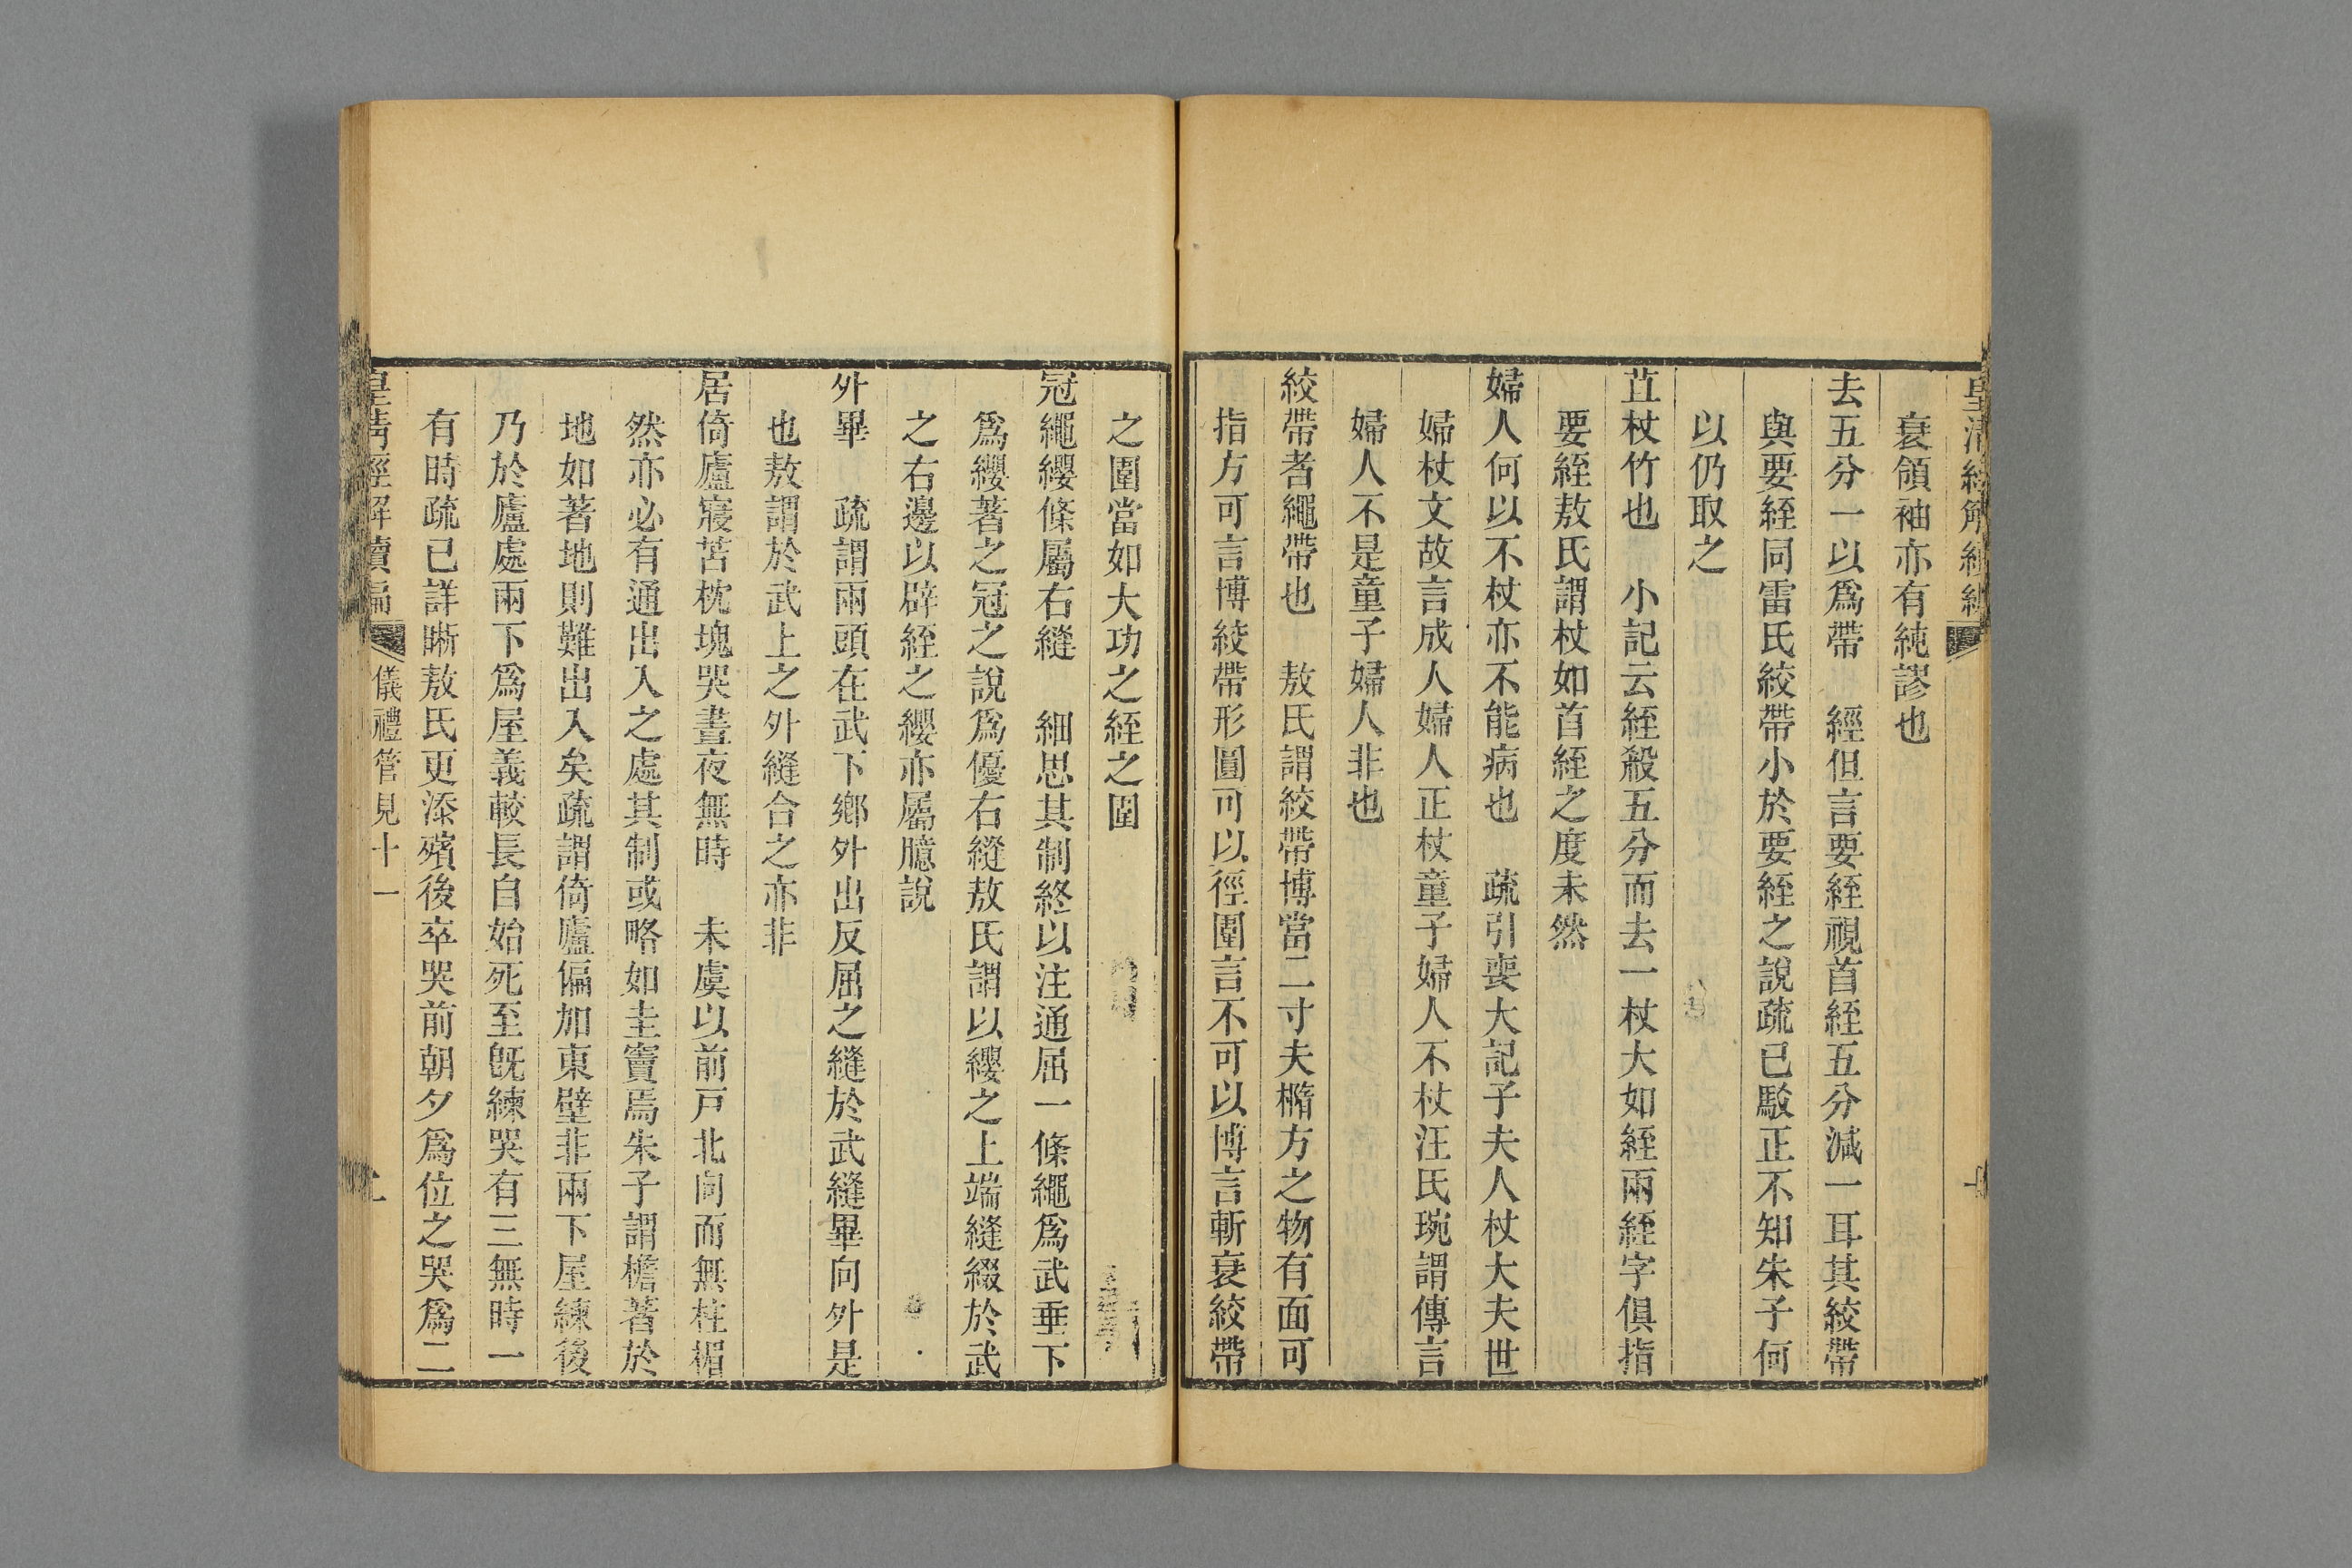 皇清經解續編
衰領袖亦有純謬也
去五分一以爲帶　經但言要絰視首絰五分減一耳其絞帶
與要絰同雷氏絞帶小於要絰之說疏已駁正不知朱子何
以仍取之
苴杖竹也　小記云絰殺五分而去一杖大如絰兩絰字俱指
要絰敖氏謂杖如首絰之度未然
婦人何以不杖亦不能病也　疏引喪大記子夫人杖大夫世
婦杖文故言成人婦人正杖童子婦人不杖汪氏琬謂傳言
婦人不是童子婦人非也
絞帶者繩帶也　敖氏謂絞帶博當二寸夫橢方之物有面可
指方可言博絞帶形圓可以徑圍言不可以博言斬衰絞帶
之圍當如大功之絰之圍
冠繩纓條屬右縫　細思其制終以注通屈一條繩爲武垂下
爲纓著之冠之說爲優右縫敖氏謂以纓之上端縫綴於武
之右邊以辟絰之纓亦屬臆說
外畢　疏謂兩頭在武下鄉外出反屈之縫於武縫畢向外是
也敖謂於武上之外縫合之亦非
居倚廬寢苫枕塊哭晝夜無時　未虞以前戸北向而無柱楣
然亦必有通出入之處其制或略如圭竇焉朱子謂檐著於
地如著地則難出入矣疏謂倚廬偏加東壁非兩下屋練後
乃於廬處兩下爲屋義較長自始死至旣練哭有三無時一
有時疏已詳晰敖氏更添殯後卒哭前朝夕爲位之哭爲二
皇清經解續編　儀禮管見十一